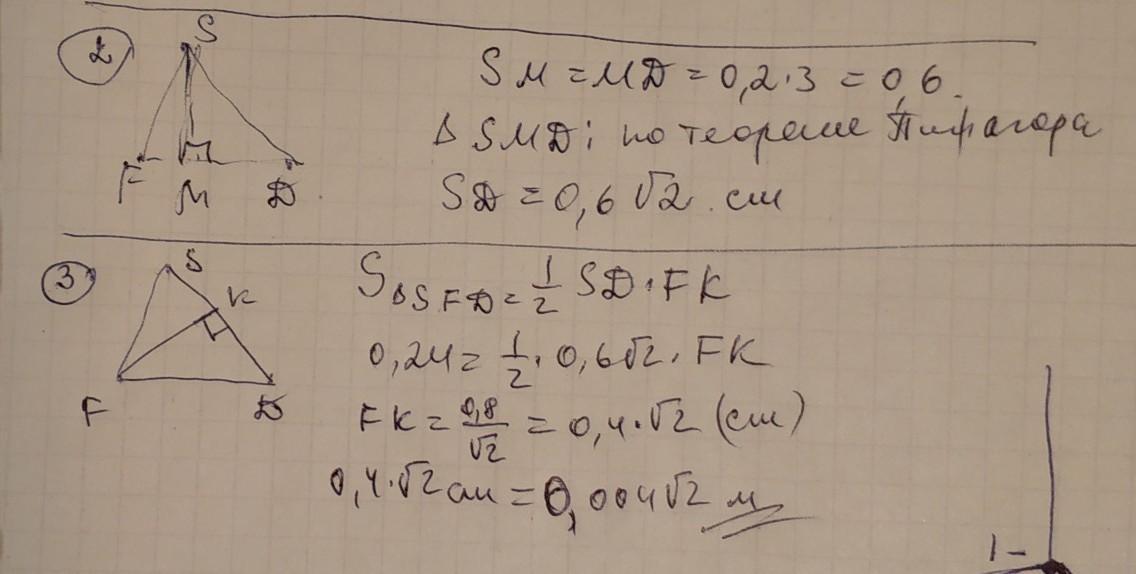 2
S
F M D
SM = MD = 0,2·3 = 0,6.
Δ SMD; по теореме Пифагора
SD = 0,6 √2 см
3
S
K
F D
S_ΔSFD = 1/2 SD·FK
0,24 = 1/2 · 0,6√2 · FK
FK = 0,8/√2 = 0,4·√2 (см)
0,4·√2 см = 0,004√2 м
1-